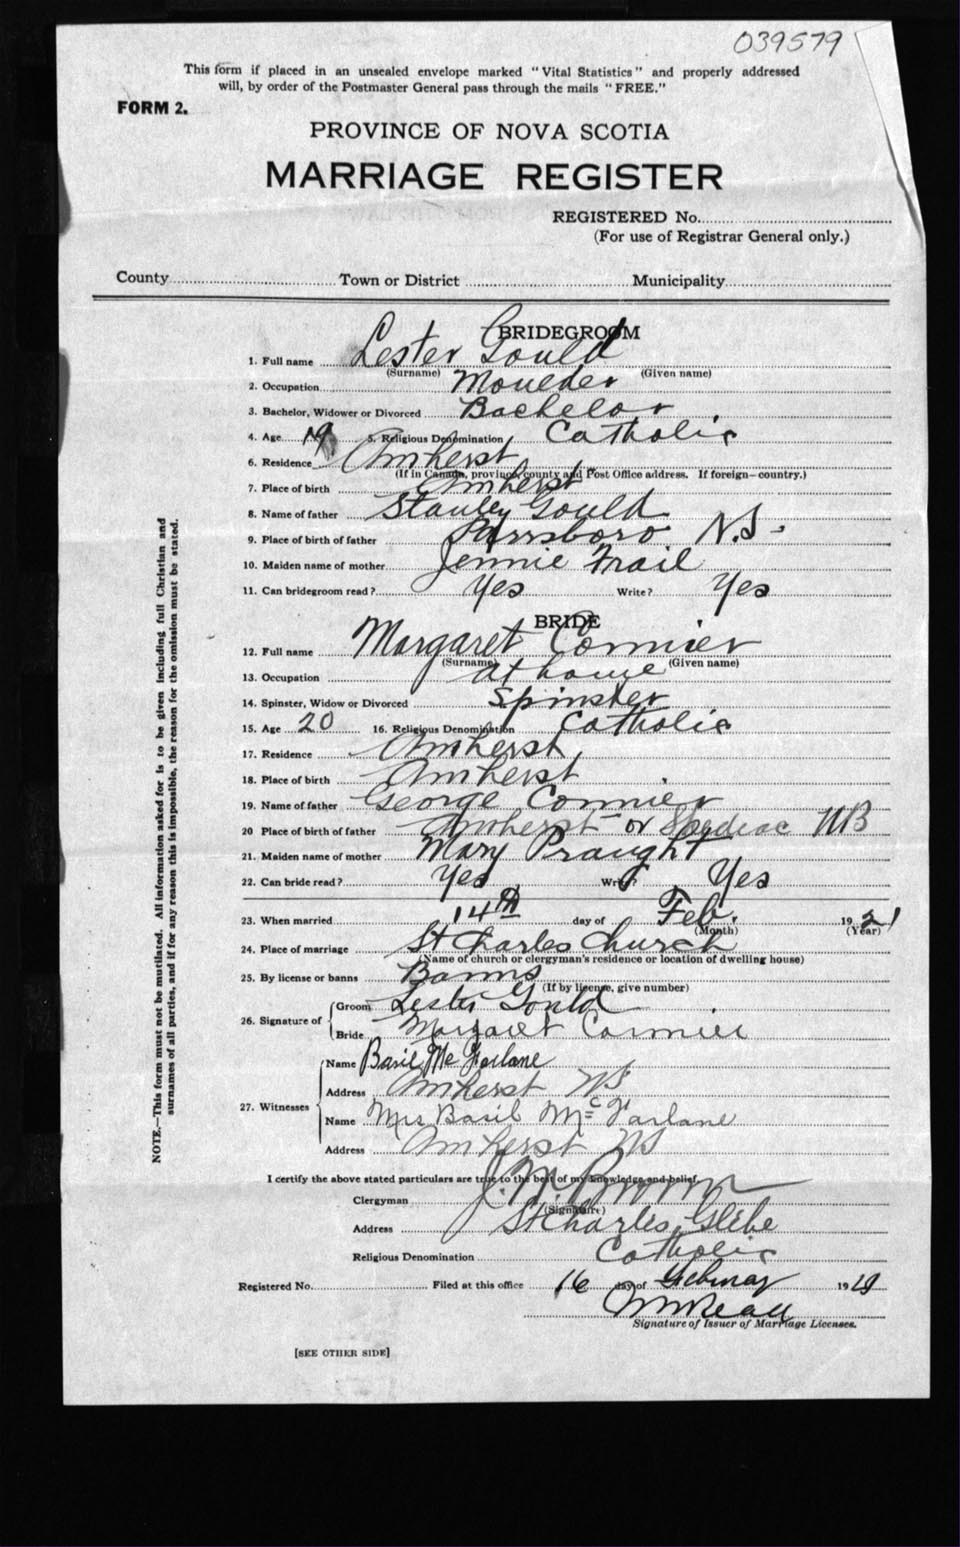 039579
This form if placed in an unsealed envelope marked "Vital Statistics" and properly addressed
will, by order of the Postmaster General pass through the mails "FREE."
FORM 2.
PROVINCE OF NOVA SCOTIA
MARRIAGE REGISTER
REGISTERED No.
(For use of Registrar General only.)
County Town or District Municipality
BRIDEGROOM
1. Full name Lester Gould
(Surname) (Given name)
2. Occupation Moulder
3. Bachelor, Widower or Divorced Bachelor
4. Age 19 5. Religious Denomination Catholic
6. Residence Amherst
(If in Canada, province, county and Post Office address. If foreign—country.)
7. Place of birth Amherst
8. Name of father Stanley Gould
9. Place of birth of father Parrsboro N.S.
10. Maiden name of mother Jennie Trail
11. Can bridegroom read? Yes Write? Yes
BRIDE
12. Full name Margaret Cormier
(Surname) (Given name)
13. Occupation at home
14. Spinster, Widow or Divorced Spinster
15. Age 20 16. Religious Denomination Catholic
17. Residence Amherst
18. Place of birth Amherst
19. Name of father George Cormier
20 Place of birth of father Amherst or Shediac NB
21. Maiden name of mother Mary Praught
22. Can bride read? Yes Write? Yes
23. When married 14th day of Feb. 1921
(Month) (Year)
24. Place of marriage St Charles Church
(Name of church or clergyman's residence or location of dwelling house)
25. By license or banns Banns
(If by license, give number)
26. Signature of Groom Lester Gould
Bride Margaret Cormier
27. Witnesses Name Basil McFarlane
Address Amherst NS
Name Mrs Basil McFarlane
Address Amherst NS
I certify the above stated particulars are true to the best of my knowledge and belief.
Clergyman J. M. Brown
(Signature)
Address St Charles Glebe
Religious Denomination Catholic
Registered No. Filed at this office 16 day of February 19
Signature of Issuer of Marriage Licenses.
[SEE OTHER SIDE]
NOTE.—This form must not be mutilated. All information asked for is to be given including full Christian and
surnames of all parties, and if for any reason this is impossible, the reason for the omission must be stated.